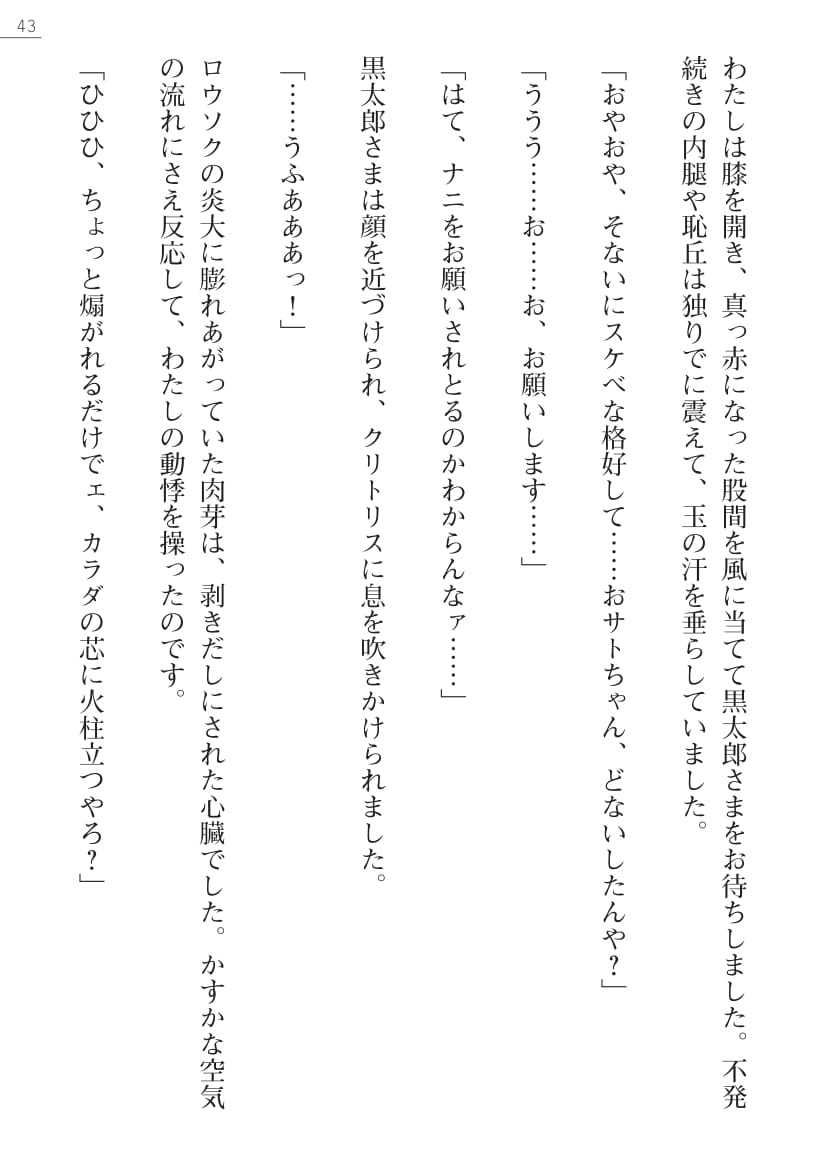 43
わたしは膝を開き、真っ赤になった股間を風に当てて黒太郎さまをお待ちしました。不発
続きの内腿や恥丘は独りでに震えて、玉の汗を垂らしていました。
「おやおや、そないにスケベな格好して……おサトちゃん、どないしたんや？」
「ううう……お……お、お願いします……」
「はて、ナニをお願いされとるのかわからんなァ……」
黒太郎さまは顔を近づけられ、クリトリスに息を吹きかけられました。
「……うふあああっ！」
ロウソクの炎大に膨れあがっていた肉芽は、剥きだしにされた心臓でした。かすかな空気
の流れにさえ反応して、わたしの動悸を操ったのです。
「ひひひ、ちょっと煽がれるだけでェ、カラダの芯に火柱立つやろ？」